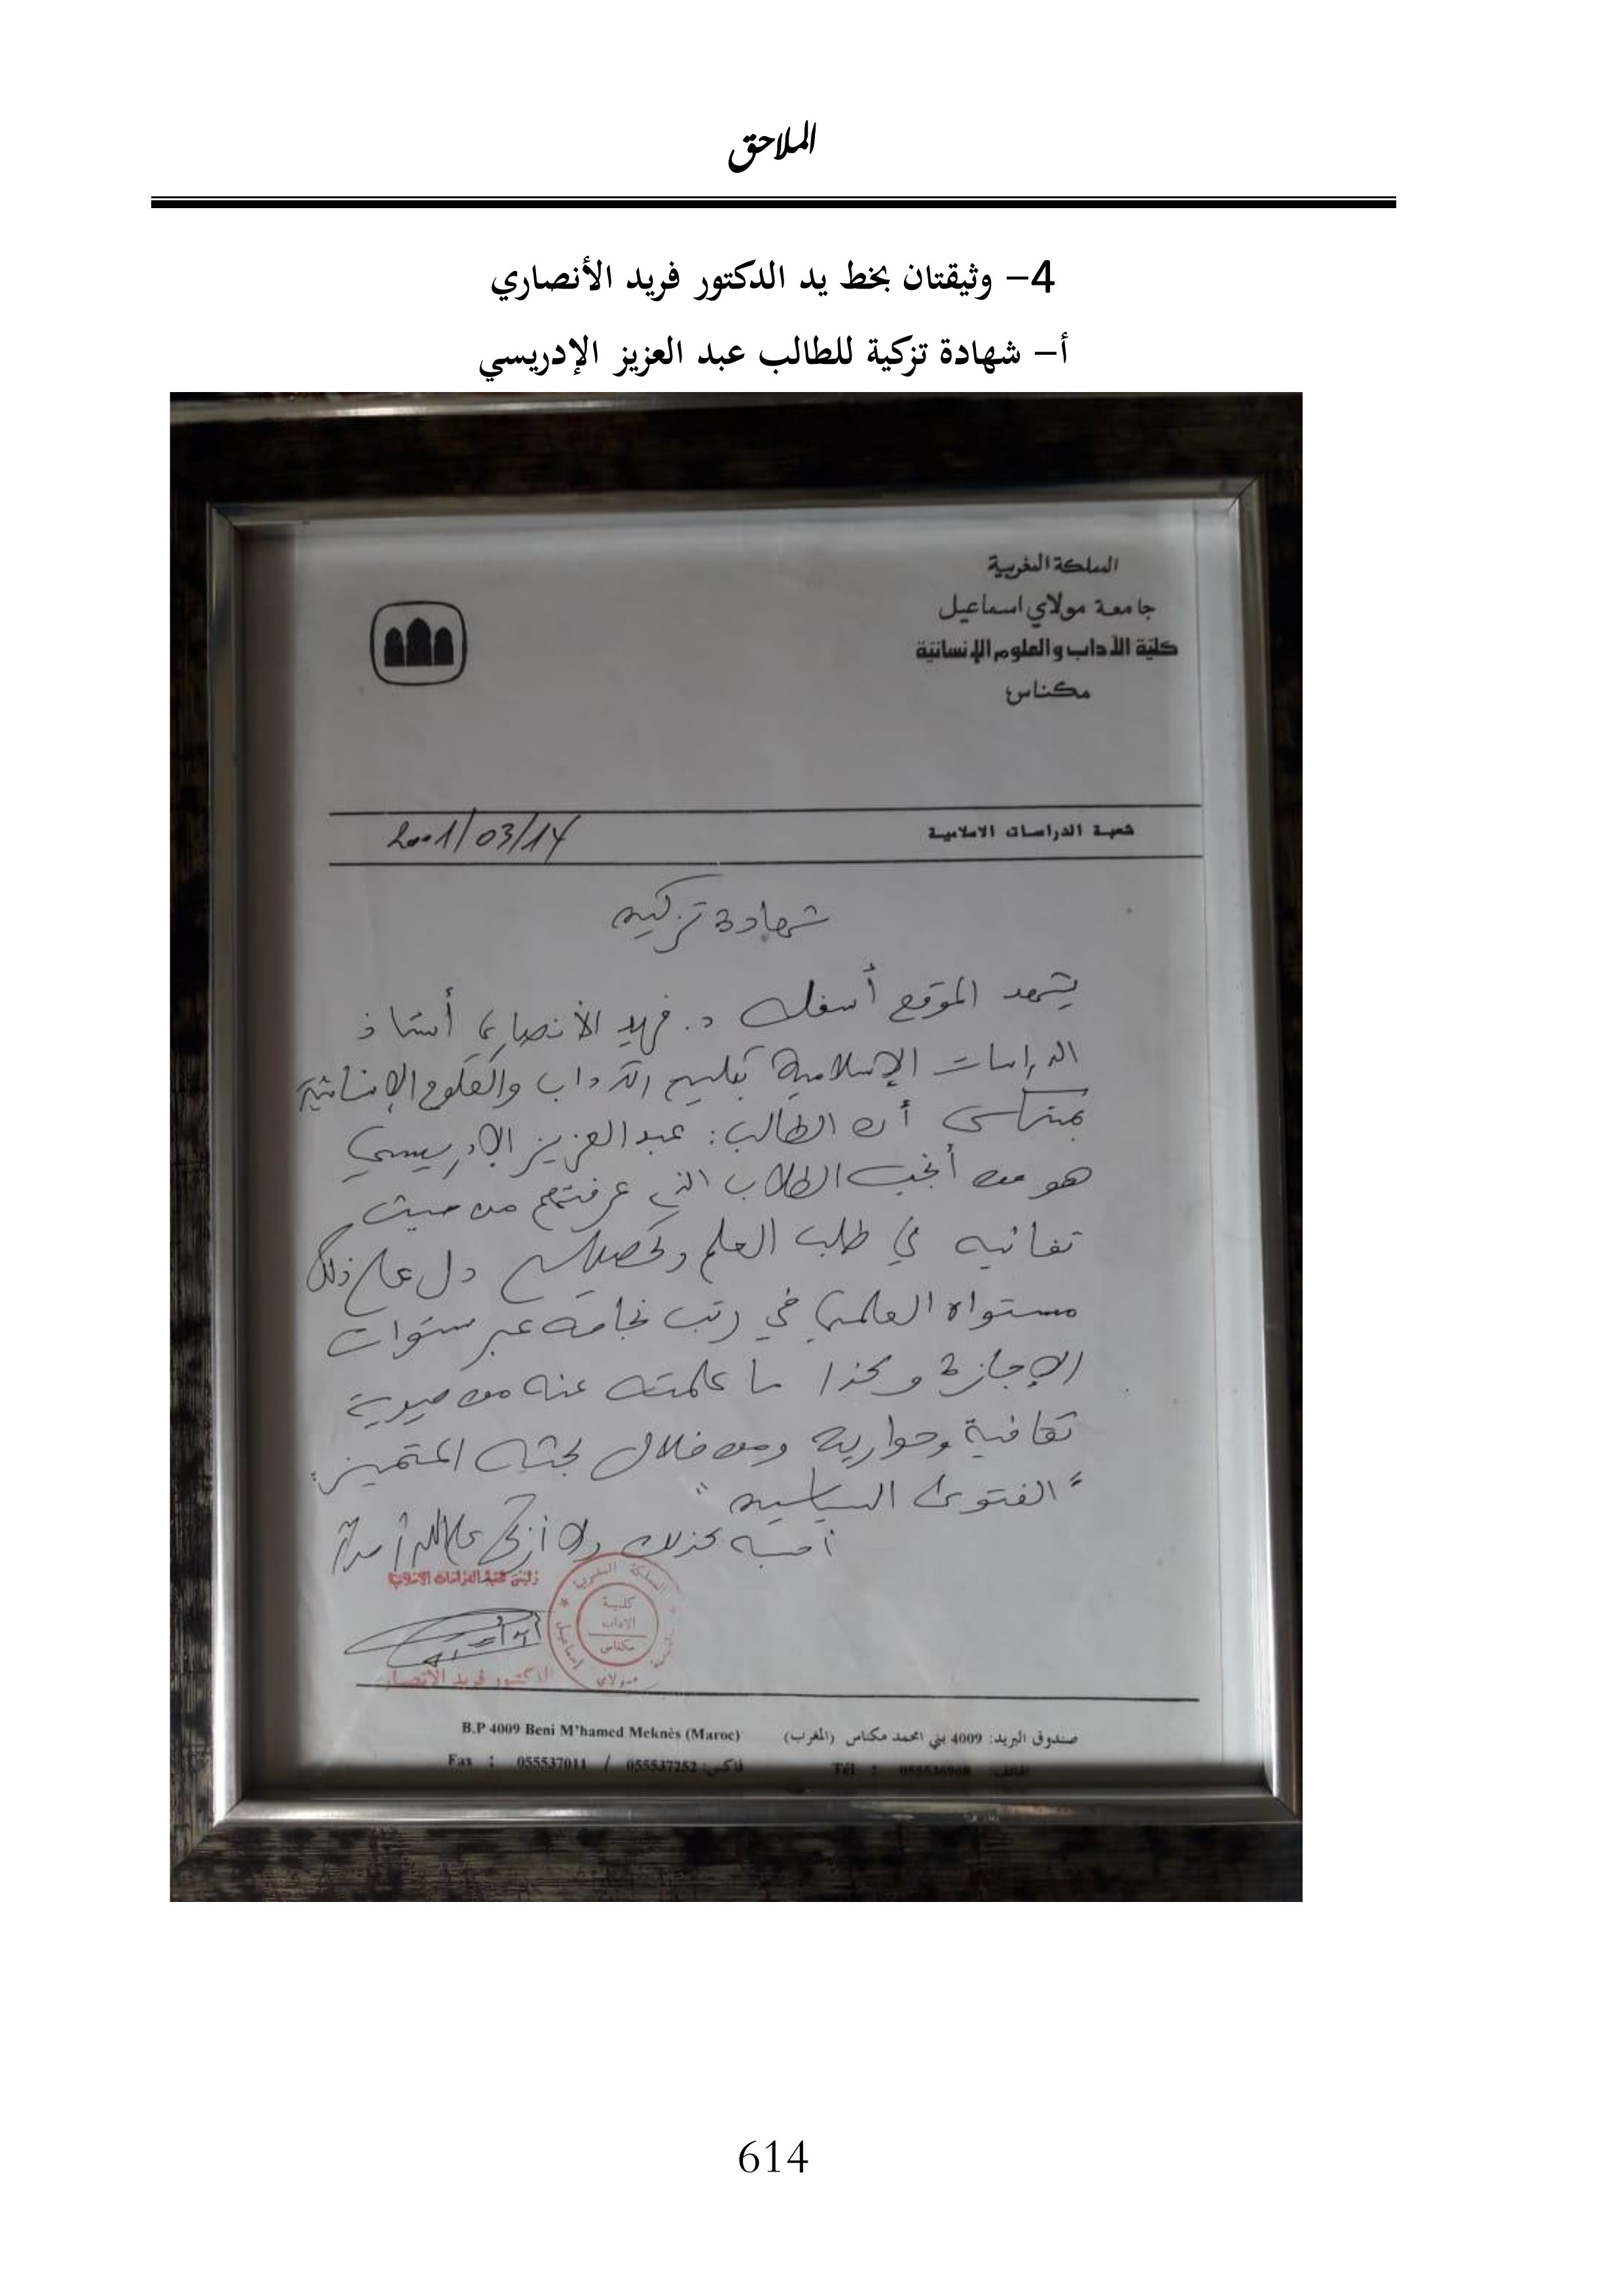 الملاحق
4- وثيقتان بخط يد الدكتور فريد الأنصاري
أ- شهادة تزكية للطالب عبد العزيز الإدريسي
المملكة المغربية
جامعة مولاي اسماعيل
كلية الآداب والعلوم الإنسانية
مكناس
شعبة الدراسات الاسلامية
2001/03/14
شهادة تزكية
يشهد الموقع أسفله د. فريد الأنصاري أستاذ
الدراسات الإسلامية بكلية الآداب والعلوم الإنسانية
بمكناس أن الطالب: عبد العزيز الإدريسي
هو من أنجب الطلاب الذين عرفتهم من حيث
تفانيه في طلب العلم وتحصيله دل على ذلك
مستواه العلمي في رتب نجاحه عبر سنوات
الإجازة وكذا ما علمته عنه من حيوية
ثقافية وحوارية ومن خلال بحثه المتميز:
"الفتوى السياسية"
أحسبه كذلك ولا أزكي على الله أحدا
رئيس شعبة الدراسات الاسلامية
المملكة المغربية
كلية
الآداب
مكناس
مولاي إسماعيل
الدكتور فريد الانصاري
صندوق البريد: 4009 بني امحمد مكناس (المغرب)
B.P 4009 Beni M'hamed Meknès (Maroc)
الهاتف: 055536968 : Tél
فاكس: 055537252 / 055537011 : Fax
614